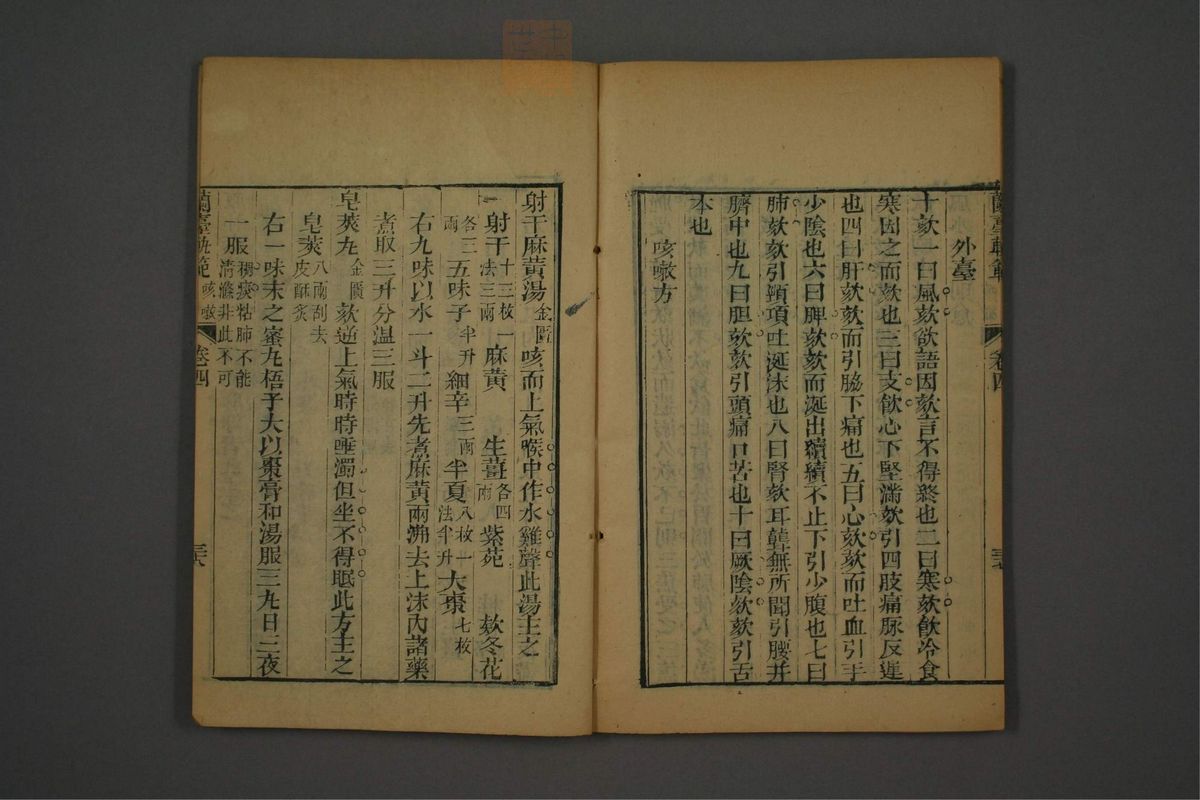 外臺
十欬一曰風欬欲語因欬言不得終也二曰寒欬飲冷食
寒因之而欬也三曰支飲心下堅滿欬引四肢痛脈反遲
也四曰肝欬欬而引脇下痛也五曰心欬欬而吐血引手
少陰也六曰脾欬欬而涎出續續不止下引少腹也七曰
肺欬欬引頸項吐涎沫也八曰腎欬耳聾無所聞引腰并
臍中也九曰胆欬欬引頭痛口苦也十曰厥陰欬欬引舌
本也
咳嗽方
射干麻黃湯金匱咳而上氣喉中作水雞聲此湯主之
射干十三枚一法三兩 麻黃 生薑各四兩 紫苑 欵冬花
各三兩 五味子半升 細辛三兩 半夏八枚一法半升 大棗七枚
右九味以水一斗二升先煮麻黃兩沸去上沫內諸藥
煮取三升分温三服
皂莢丸金匱欬逆上氣時時唾濁但坐不得眠此方主之
皂莢八兩刮去皮酥炙
右一味末之蜜丸梧子大以棗膏和湯服三丸日三夜
一服稠痰粘肺不能清滌非此不可
蘭臺軌範 咳嗽 卷四